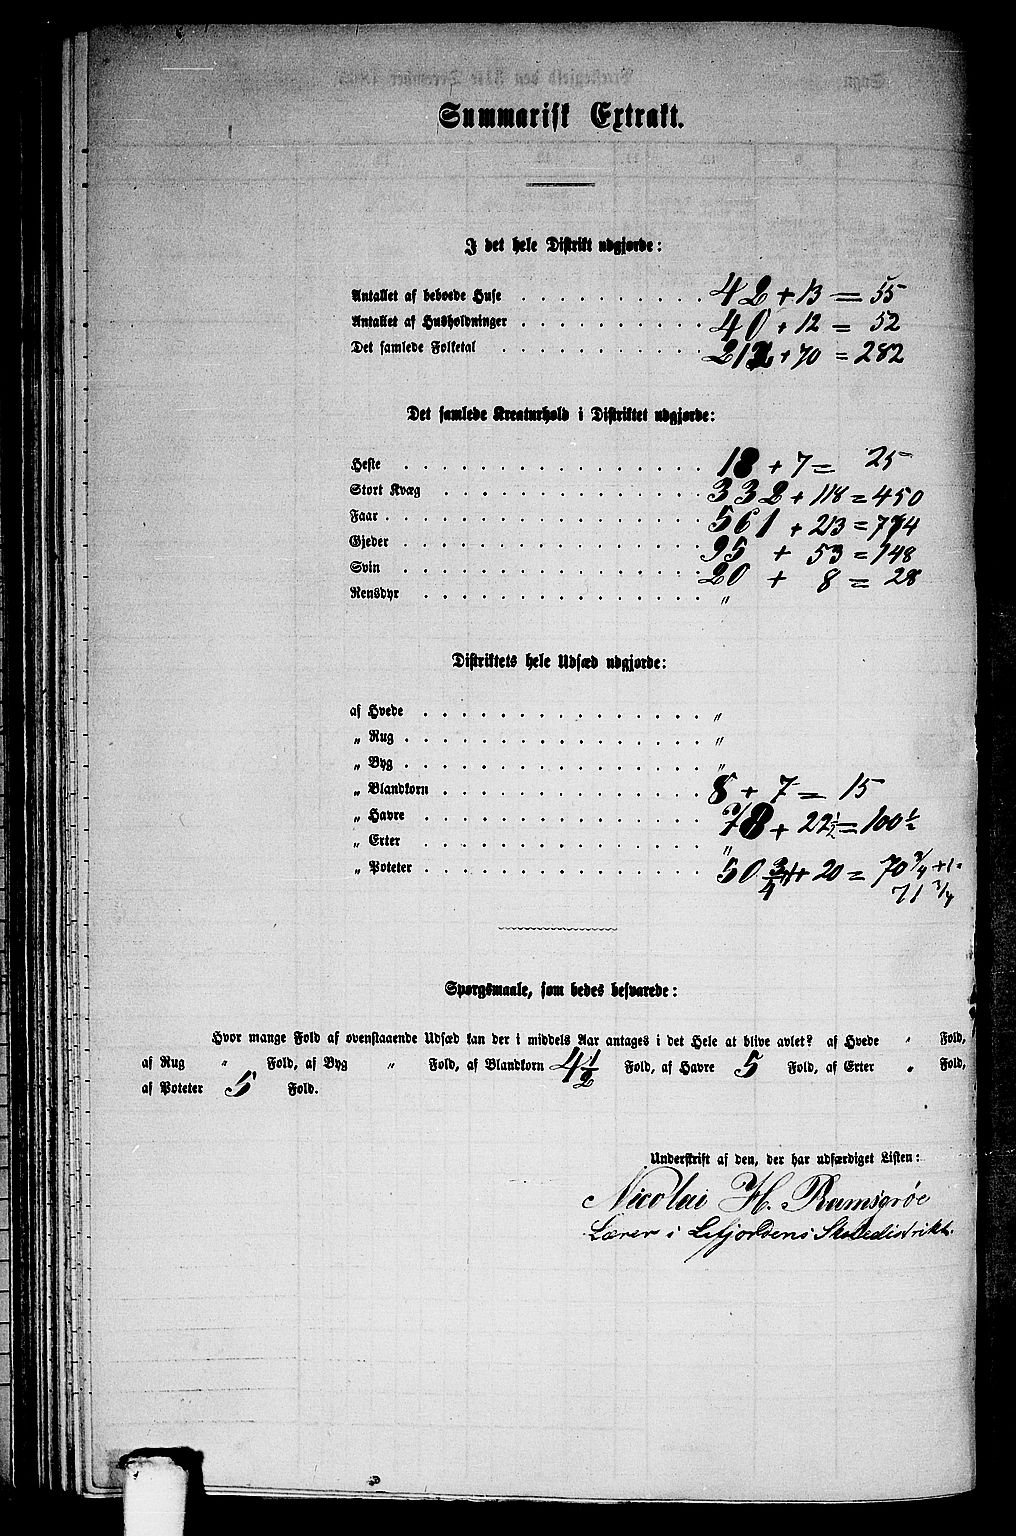 Summarisk Extrakt.
I det hele Distrikt udgjorde:
Antallet af beboede Huse . . . . . . . . 42 + 13 = 55
Antallet af Husholdninger . . . . . . . . 40 + 12 = 52
Det samlede Folketal . . . . . . . . . 212 + 70 = 282
Det samlede Kreaturhold i Distriktet udgjorde:
Heste . . . . . . . . . . . . . 18 + 7 = 25
Stort Kvæg . . . . . . . . . . . 332 + 118 = 450
Faar . . . . . . . . . . . . . . 561 + 213 = 774
Gjeder . . . . . . . . . . . . . 95 + 53 = 148
Svin . . . . . . . . . . . . . 20 + 8 = 28
Rensdyr . . . . . . . . . . . . "
Distriktets hele Udsæd udgjorde:
af Hvede . . . . . . . . . . . . "
„ Rug . . . . . . . . . . . . . "
„ Byg . . . . . . . . . . . . . "
„ Blandkorn . . . . . . . . . . . 8 + 7 = 15
„ Havre . . . . . . . . . . . . 78 + 22½ = 100½
„ Erter . . . . . . . . . . . . "
„ Poteter . . . . . . . . . . . . 50 3/4 + 20 = 70 3/4 + 1 =
71 3/4
Spørgsmaale, som bedes besvarede:
Hvor mange Fold af ovenstaaende Udsæd kan der i middels Aar antages i det Hele at blive avlet? af Hvede " Fold,
af Rug " Fold, af Byg " Fold, af Blandkorn 4½ Fold, af Havre 5 Fold, af Erter " Fold,
af Poteter 5 Fold.
Underskrift af den, der har udfærdiget Listen:
Nicolai H. Ramsgrøe
Lærer i Lefjordens Skoledistrikt.